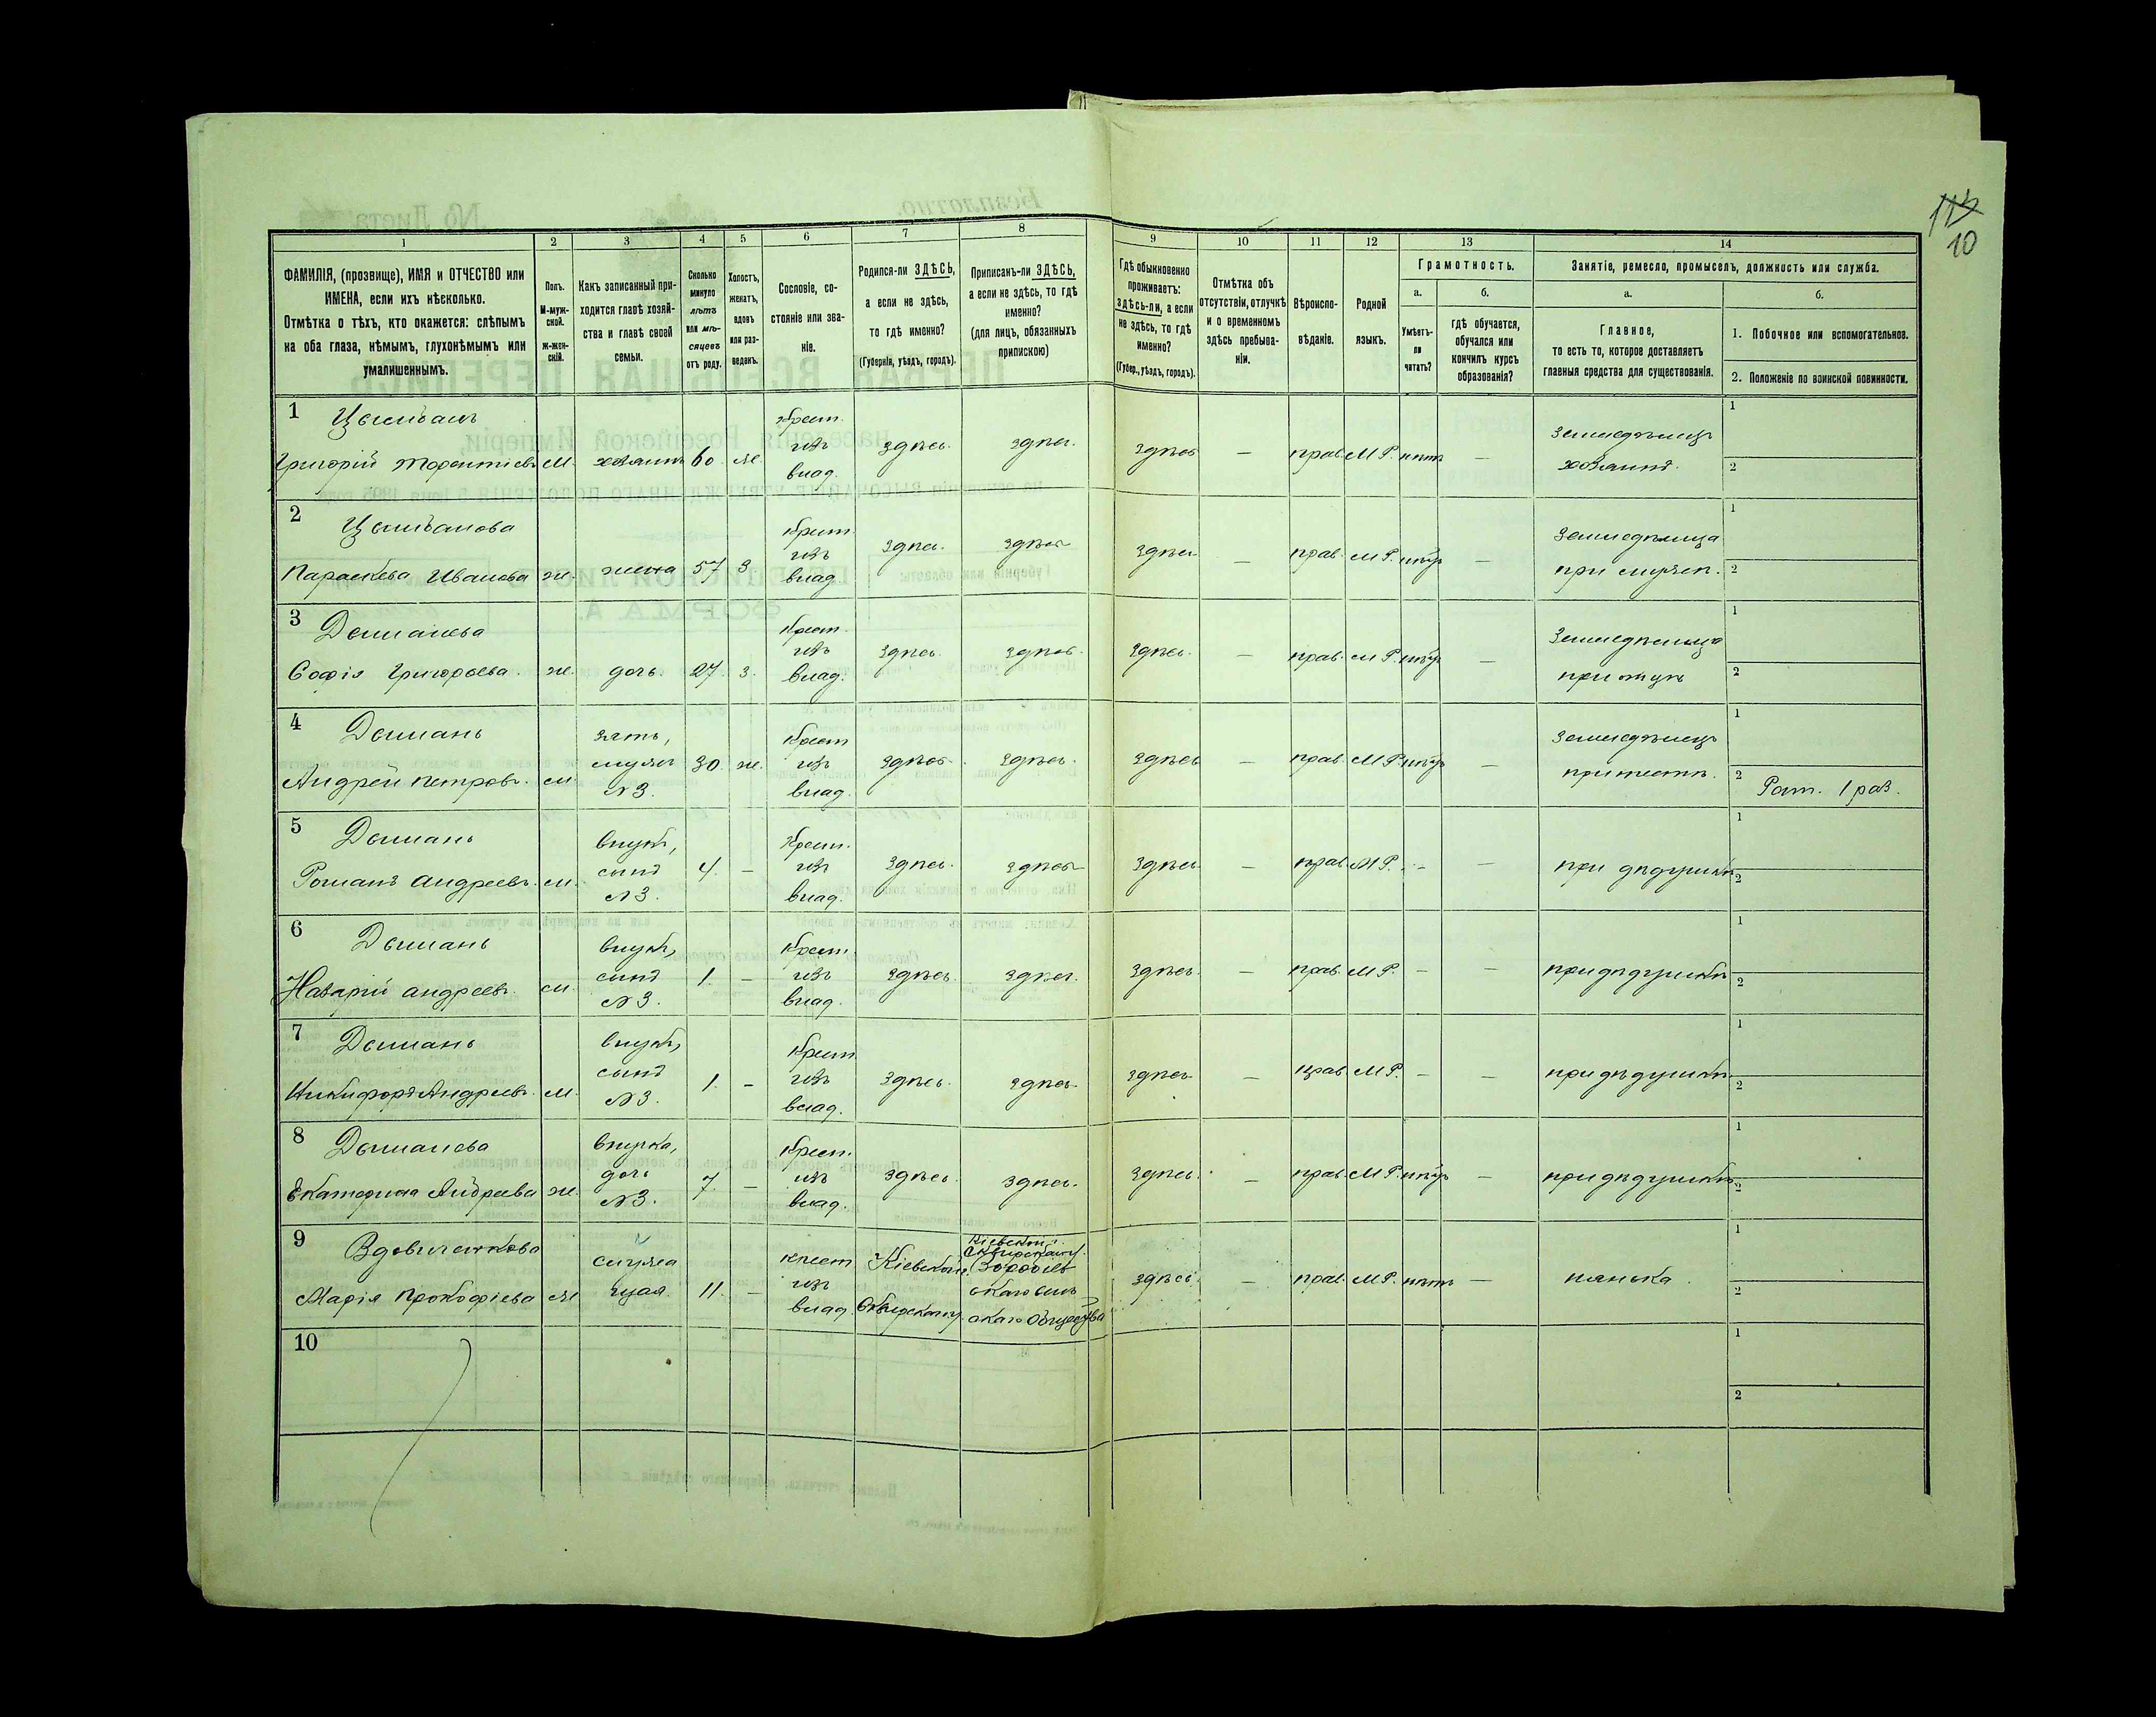 113
10
1 2 3 4 5 6 7 8 9 10 11 12 13 14
ФАМИЛІЯ, (прозвище), ИМЯ и ОТЧЕСТВО или
ИМЕНА, если ихъ нѣсколько.
Отмѣтка о тѣхъ, кто окажется: слѣпымъ
на оба глаза, нѣмымъ, глухонѣмымъ или
умалишеннымъ.
Полъ.
М-муж-
ской.
ж-жен-
скій.
Какъ записанный при-
ходится главѣ хозяй-
ства и главѣ своей
семьи.
Сколько
минуло
лѣтъ
или мѣ-
сяцевъ
отъ роду.
Холостъ,
женатъ,
вдовъ
или раз-
веденъ.
Сословіе, со-
стояніе или зва-
ніе.
Родился-ли ЗДѢСЬ,
а если не здѣсь,
то гдѣ именно?
(Губернія, уѣздъ, городъ).
Приписанъ-ли ЗДѢСЬ,
а если не здѣсь, то гдѣ
именно?
(для лицъ, обязанныхъ
припискою)
Гдѣ обыкновенно
проживаетъ:
здѣсь-ли, а если
не здѣсь, то гдѣ
именно?
(Губер., уѣздъ, городъ).
Отмѣтка объ
отсутствіи, отлучкѣ
и о временномъ
здѣсь пребыва-
ніи.
Вѣроиспо-
вѣданіе.
Родной
языкъ.
Грамотность.
а.
Умѣетъ-
ли
читать?
б.
гдѣ обучается,
обучался или
кончилъ курсъ
образованія?
Занятіе, ремесло, промыселъ, должность или служба.
а.
Главное,
то есть то, которое доставляетъ
главныя средства для существованія.
б.
1. Побочное или вспомогательное.
2. Положеніе по воинской повинности.
1 Цымбалъ
Григорій м. хозяинъ 60 ж. крест. изъ влад. здѣсь. здѣсь. здѣсь — прав. М.Р. нѣтъ — земледѣлецъ хозяинъ. 1 2
2 Цымбалова
Параскева Иванова ж. жена 57 з. крест. изъ влад. здѣсь. здѣсь здѣсь — прав. М.Р. — земледѣлица при мужѣ. 1 2
3 Доманева
Софія Григорьева. ж. дочь. 27 з. крест. изъ влад. здѣсь. здѣсь. здѣсь. — прав. М.Р. — земледѣлица при отцѣ 1 2
4 Домань
Андрей Петровъ. м. зять, мужъ №3. 30. ж. крест. изъ влад. здѣсь. здѣсь. здѣсь — прав. М.Р. — земледѣлецъ при тестѣ. 1 2 Рат. 1 раз.
5 Домань
Романъ Андреевъ. м. внукъ, сынъ №3. 4. — крест. изъ влад. здѣсь. здѣсь здѣсь — прав. М.Р. — — при дѣдушкѣ 1 2
6 Домань
Назарій Андреевъ. м. внукъ, сынъ №3. 1. — крест. изъ влад. здѣсь. здѣсь. здѣсь. — прав. М.Р. — — при дѣдушкѣ 1 2
7 Домань
Никифоръ Андреевъ. м. внукъ, сынъ №3. 1. — крест. изъ влад. здѣсь. здѣсь здѣсь — прав. М.Р. — — при дѣдушкѣ 1 2
8 Доманева
Екатерина Андреева ж. внучка, дочь №3. 7. — крест. изъ влад. здѣсь. здѣсь. здѣсь. — прав. М.Р. — при дѣдушкѣ 1 2
9
Марія Прокофіева служащая 11. — крест. изъ влад. Кіевской. Сквирскаго. Кіевской. Сквирскаго общества здѣсь. — прав. М.Р. нѣтъ — нянька. 1 2
10 1 2